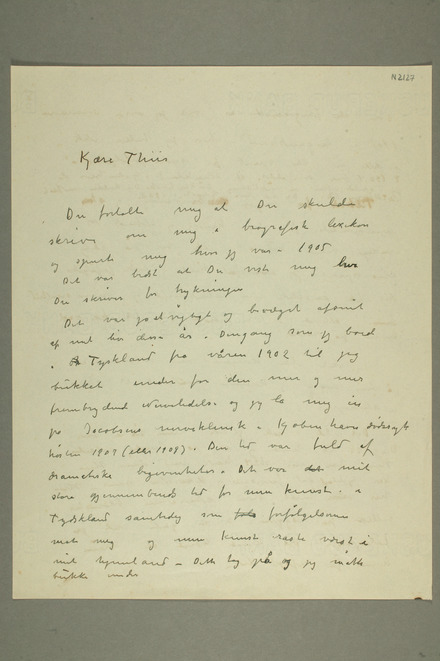 N 2127
Kjære Thiis
Du fortalte mig at Du skulde
skrive om mig i biografisk lexikon
og spurte mig hvor jeg var i 1905
Det var bedst at Du viste mig hva
Du skriver før trykningen
Det var jo et vigtigt og bevæget afsnit
af mit liv disse år. Dengang som jeg boed
i Tyskland fra våren 1902 til jeg
bukket under for den mer og mer
frembrydende og jeg la mig in
på Jacobsens nerveklinik i Kjøbenhavn dødssyg
høsten 1909 (eller 1908). Den tid var fuld af
dramatiske begivenheder. Det var det mit
store gjennembruds tid for min kunst i
Tydskland samtidig som forfølgelserne
mot mig og min kunst raste værst i
mit hjemland – Dette tog på og jeg måtte
bukke under